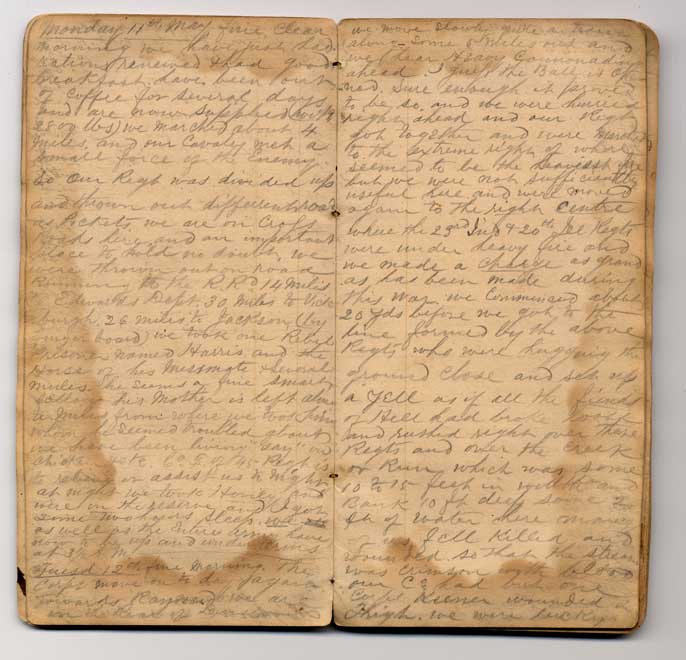 Monday 11th May fine Clear
morning we have just had
rations renewed & had good
breakfast. have been out
of Coffee for several days
and are now supplied
we marched about 4
miles, and our Cavalry met a
small force of the Enemy.
So our Regt was divided up
and thrown out different roads
as Pickets, we are on Cross
roads here, and an important
place to hold no doubt, we
were thrown out on road
Running to the R.R. 14 Miles
to Edwards Depot, 30 Miles to Vicks
burgh, 26 miles to Jackson, (by
finger board) we took one Rebel
Prisoner named Harris and the
Horse of his Messmate & several
Mules. He seems a fine smart
fellow, his Mother is left alone
miles from where we took him
whom he seemed troubled about
we have been living "Gay" on
Chickens &c. Regt is
to relieve or assist us to night
at night we took Honey and
were on the reserve and I got
some two hours sleep, we
as well as the Entire army have
to be up and under arms
at 3½
Tuesd 12th fine morning. The
Corps move on to day again
towards Raymond we are
in the Rear of
we move slowly quite a
along some 5 Miles out and
we hear Heavy Cannonading
ahead. I guess the Ball is Ope
ned. Sure enough it proved
to be so, and we were hurried
right ahead and our Regt
got together and were marched
to the extreme right of where
seemed to be the heaviest fire
but we were not sufficiently
useful here and were moved
again to the right Centre
where the 23rd Ind & 20th Ill Regts
were under heavy fire and
we made a Charge as grand
as has been made during
this War. we Commenced about
20 yds before we got to the
line formed by the above
Regts who were hugging the
ground close and set up
a yell as if all the fiends
of Hell had broke loose
and rushed right over these
Regts and over the Creek
or Run, which was some
10 to 15 feet in width and
Bank 10 ft deep some 2
ft of Water. here many
fell Killed and
Wounded, so that the stream
was crimson with blood
our Co had but one
Corpl wounded
thigh. we were lucky